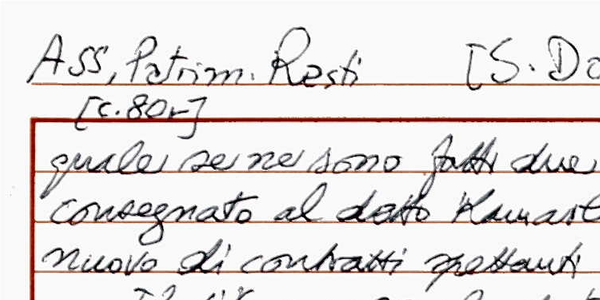 Ass, Patrim. Resti [S. Do
[c. 80r]
quale se ne sono fatti due
consegnato al datto
nuovo di contratti spettanti